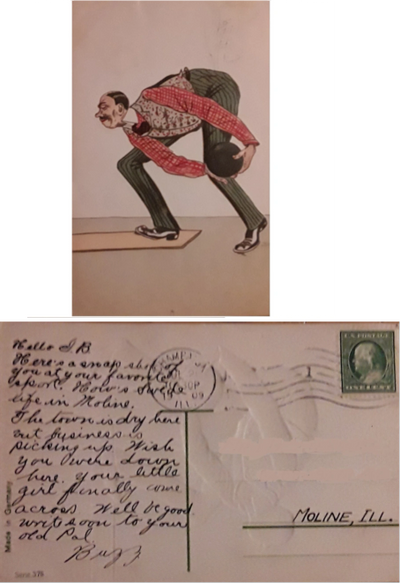 Hello I.B.
Here's a snap shot of
you at your favorite
sport. How's
life in Moline.
The town is dry here
but business is
picking up. Wish
you were down
here. your little
girl finally come
across. Well be good
write soon to your
old Pal
Buzz
CHAMPAIGN
30P
09
ILL.
1
U.S. POSTAGE
ONE CENT
MOLINE, ILL.
Made in Germany
Serie